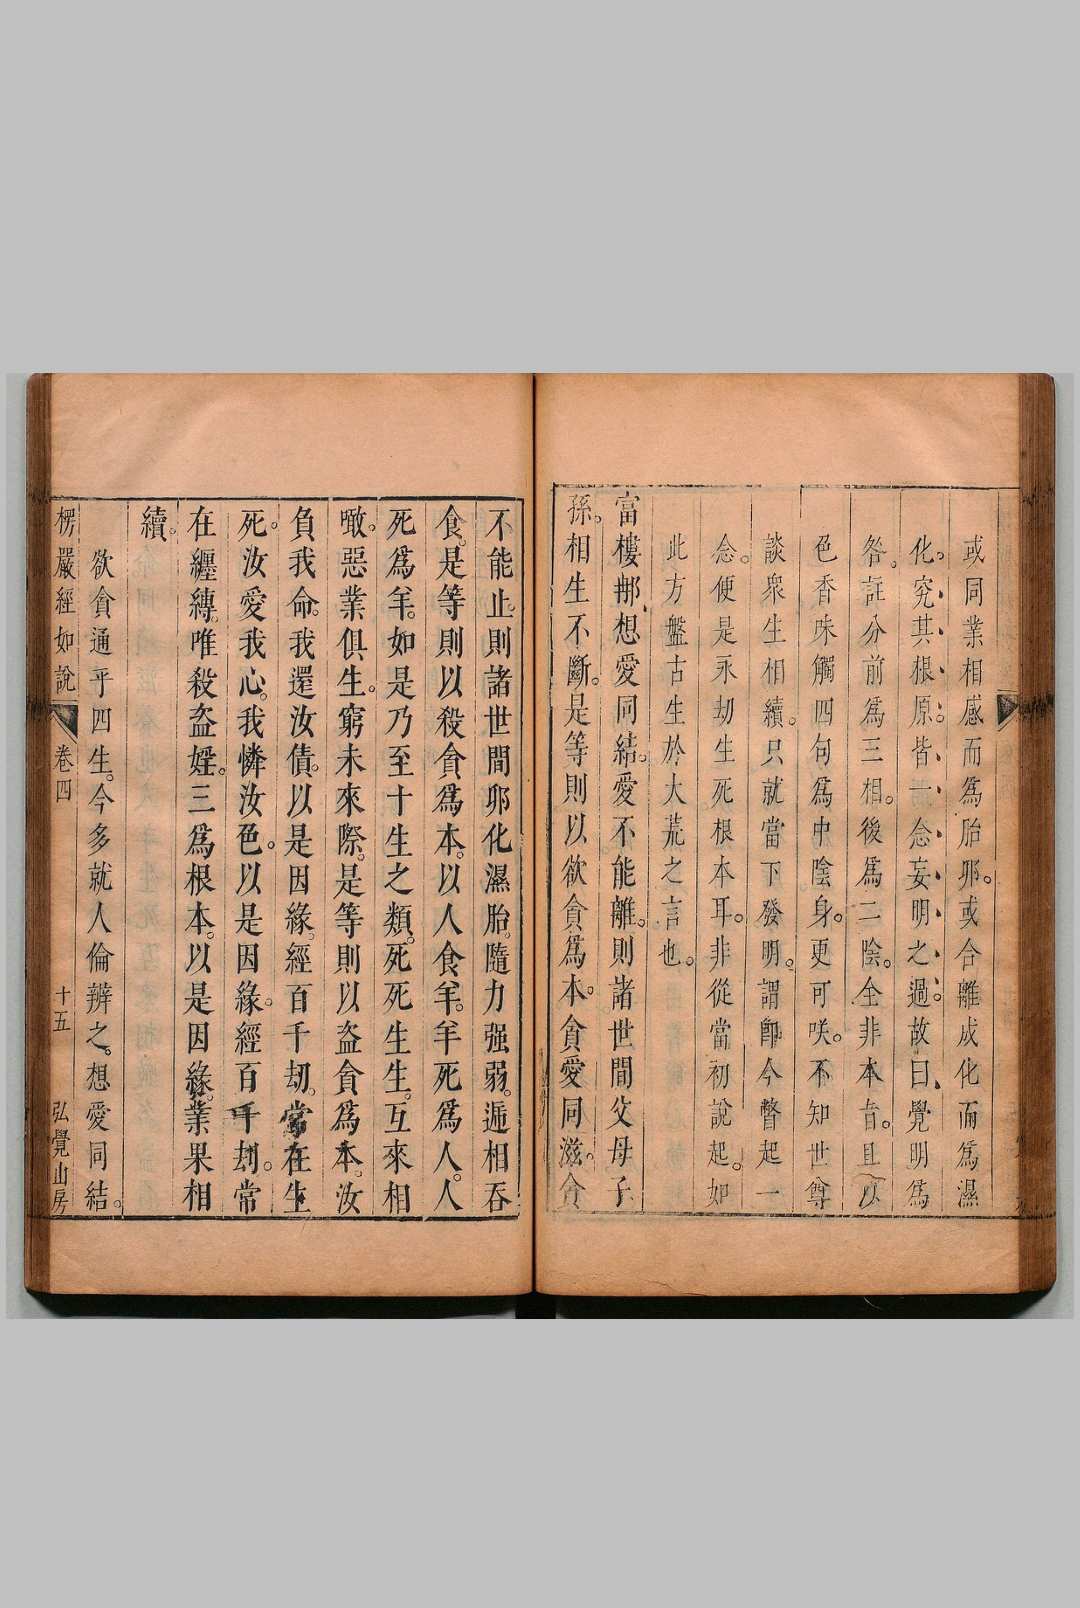 或同業相感而爲胎卵。或合離成化而爲濕
化。究其根原。皆一念妄明之過。故曰覺明爲
咎。註分前爲三相。後爲二陰。全非本旨。且以
色香味觸四句爲中陰身。更可咲。不知世尊
談衆生相續。只就當下發明。謂卽今瞥起一
念。便是永劫生死根本耳。非從當初說起。如
此方盤古生於大荒之言也。
富樓那想愛同結。愛不能離。則諸世間父母子
孫。相生不斷。是等則以欲貪爲本。貪愛同滋。貪
不能止。則諸世間卵化濕胎。隨力强弱。遞相吞
食。是等則以殺貪爲本。以人食羊。羊死爲人。人
死爲羊。如是乃至十生之類。死死生生。互來相
噉。惡業俱生。窮未來際。是等則以盜貪爲本。汝
負我命。我還汝債。以是因緣。經百千劫。常在生
死。汝愛我心。我憐汝色。以是因緣。經百千劫。常
在纏縛。唯殺盜婬。三爲根本。以是因緣。業果相
續。
欲貪通乎四生。今多就人倫辨之。想愛同結。
楞嚴經如說 卷四 十五 弘覺山房